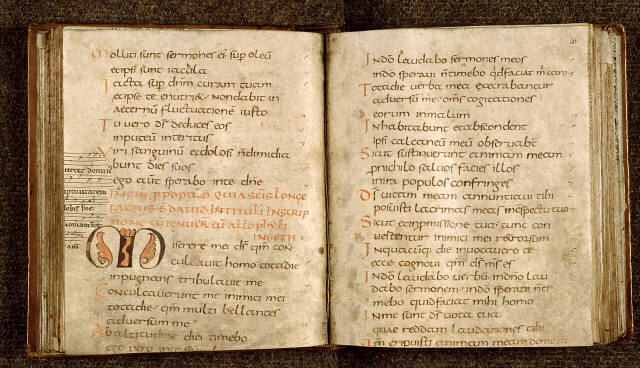 Molliti sunt sermones ei sup oleū
et ipsi sunt iacula
Iacta sup dnm curam tuam
et ipse te enutriet Non dabit in
aeternū fluctuationē iusto
Tu vero ds deduces eos
in puteū interitus
Viri sanguinū et dolosi n dimidia
bunt dies suos
ego autē sperabo in te dne
IN FIN P POPULO QUI A SCIS LONGE
FACTUS E DAVID IN TITULI INSCRIP
TIONE CU TENUER EU ALLOPHYLI
IN GETH
Miserere mei ds qm con
culcavit homo tota die
inpugnans tribulavit me
Conculcaverunt me inimici mei
tota die qm multi bellantes
adversum me
Ab altitudine diei timebo
ego vero in te
66
In dō laudabo sermones meos
in dō speravi n timebo qd faciat m caro
Tota die verba mea execrabantur
adversū me oms cogitationes
eorum in malum
Inhabitabunt et abscondent
ipsi calcaneū meū observabt
Sicut sustinuerunt animam meam
p nichilo salvos facies illos
in ira populos confringes
Ds vitam meam annunciavi tibi
posuisti lacrimas meas in conspectu tuo
Sicut et in pmissione tua tunc con
vertentur inimici mei retrorsum
In quacūq; die invocavero te
ecce cognovi qm ds ms es
In dō laudabo verbū in dno lau
dabo sermonem in dō speravi n ti
mebo quid faciat mihi homo
In me sunt ds vota tua
quae reddam laudationes tibi
Qm eripuisti animam meam de morte